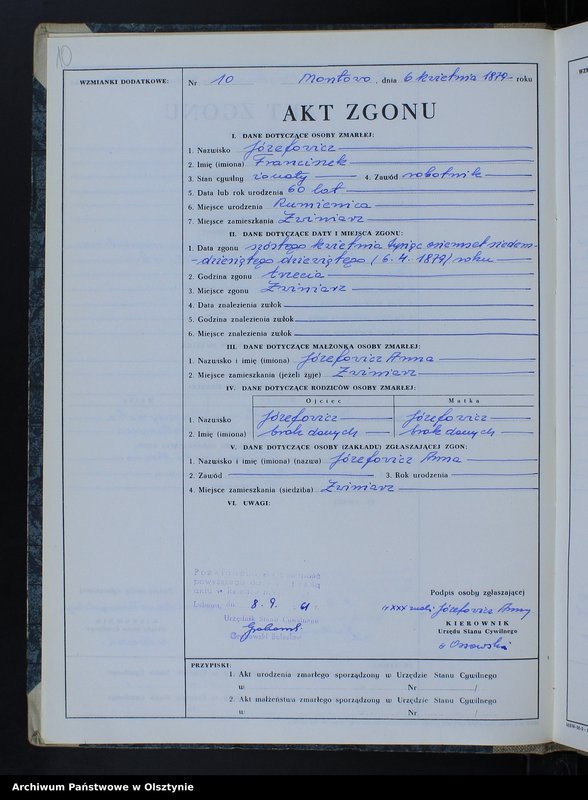 10
WZMIANKI DODATKOWE:
Nr 10 Montowo, dnia 6 kwietnia 1879 roku
AKT ZGONU
I. DANE DOTYCZĄCE OSOBY ZMARŁEJ:
1. Nazwisko Józefowicz
2. Imię (imiona) Franciszek
3. Stan cywilny żonaty 4. Zawód robotnik
5. Data lub rok urodzenia 60 lat
6. Miejsce urodzenia Rumienica
7. Miejsce zamieszkania Zwiniarz
II. DANE DOTYCZĄCE DATY I MIEJSCA ZGONU:
1. Data zgonu szóstego kwietnia tysiąc osiemset siedem-
-dziesiątego dziewiątego (6. 4. 1879) roku
2. Godzina zgonu trzecia
3. Miejsce zgonu Zwiniarz
4. Data znalezienia zwłok
5. Godzina znalezienia zwłok
6. Miejsce znalezienia zwłok
III. DANE DOTYCZĄCE MAŁŻONKA OSOBY ZMARŁEJ:
1. Nazwisko i imię (imiona) Józefowicz Anna
2. Miejsce zamieszkania (jeżeli żyje) Zwiniarz
IV. DANE DOTYCZĄCE RODZICÓW OSOBY ZMARŁEJ:
Ojciec Matka
1. Nazwisko Józefowicz Józefowicz
2. Imię (imiona) brak danych brak danych
V. DANE DOTYCZĄCE OSOBY (ZAKŁADU) ZGŁASZAJĄCEJ ZGON:
1. Nazwisko i imię (imiona) (nazwa) Józefowicz Anna
2. Zawód 3. Rok urodzenia
4. Miejsce zamieszkania (siedziba) Zwiniarz
VI. UWAGI:
powyższego
Lubawa, dn. 8. 9. 61 r.
Urzędnik Stanu Cywilnego
Podpis osoby zgłaszającej
XXX Józefowicz Anny
KIEROWNIK
Urzędu Stanu Cywilnego
Ossowski
PRZYPISKI:
1. Akt urodzenia zmarłego sporządzony w Urzędzie Stanu Cywilnego
w Nr /
2. Akt małżeństwa zmarłego sporządzony w Urzędzie Stanu Cywilnego
w Nr /
Archiwum Państwowe w Olsztynie